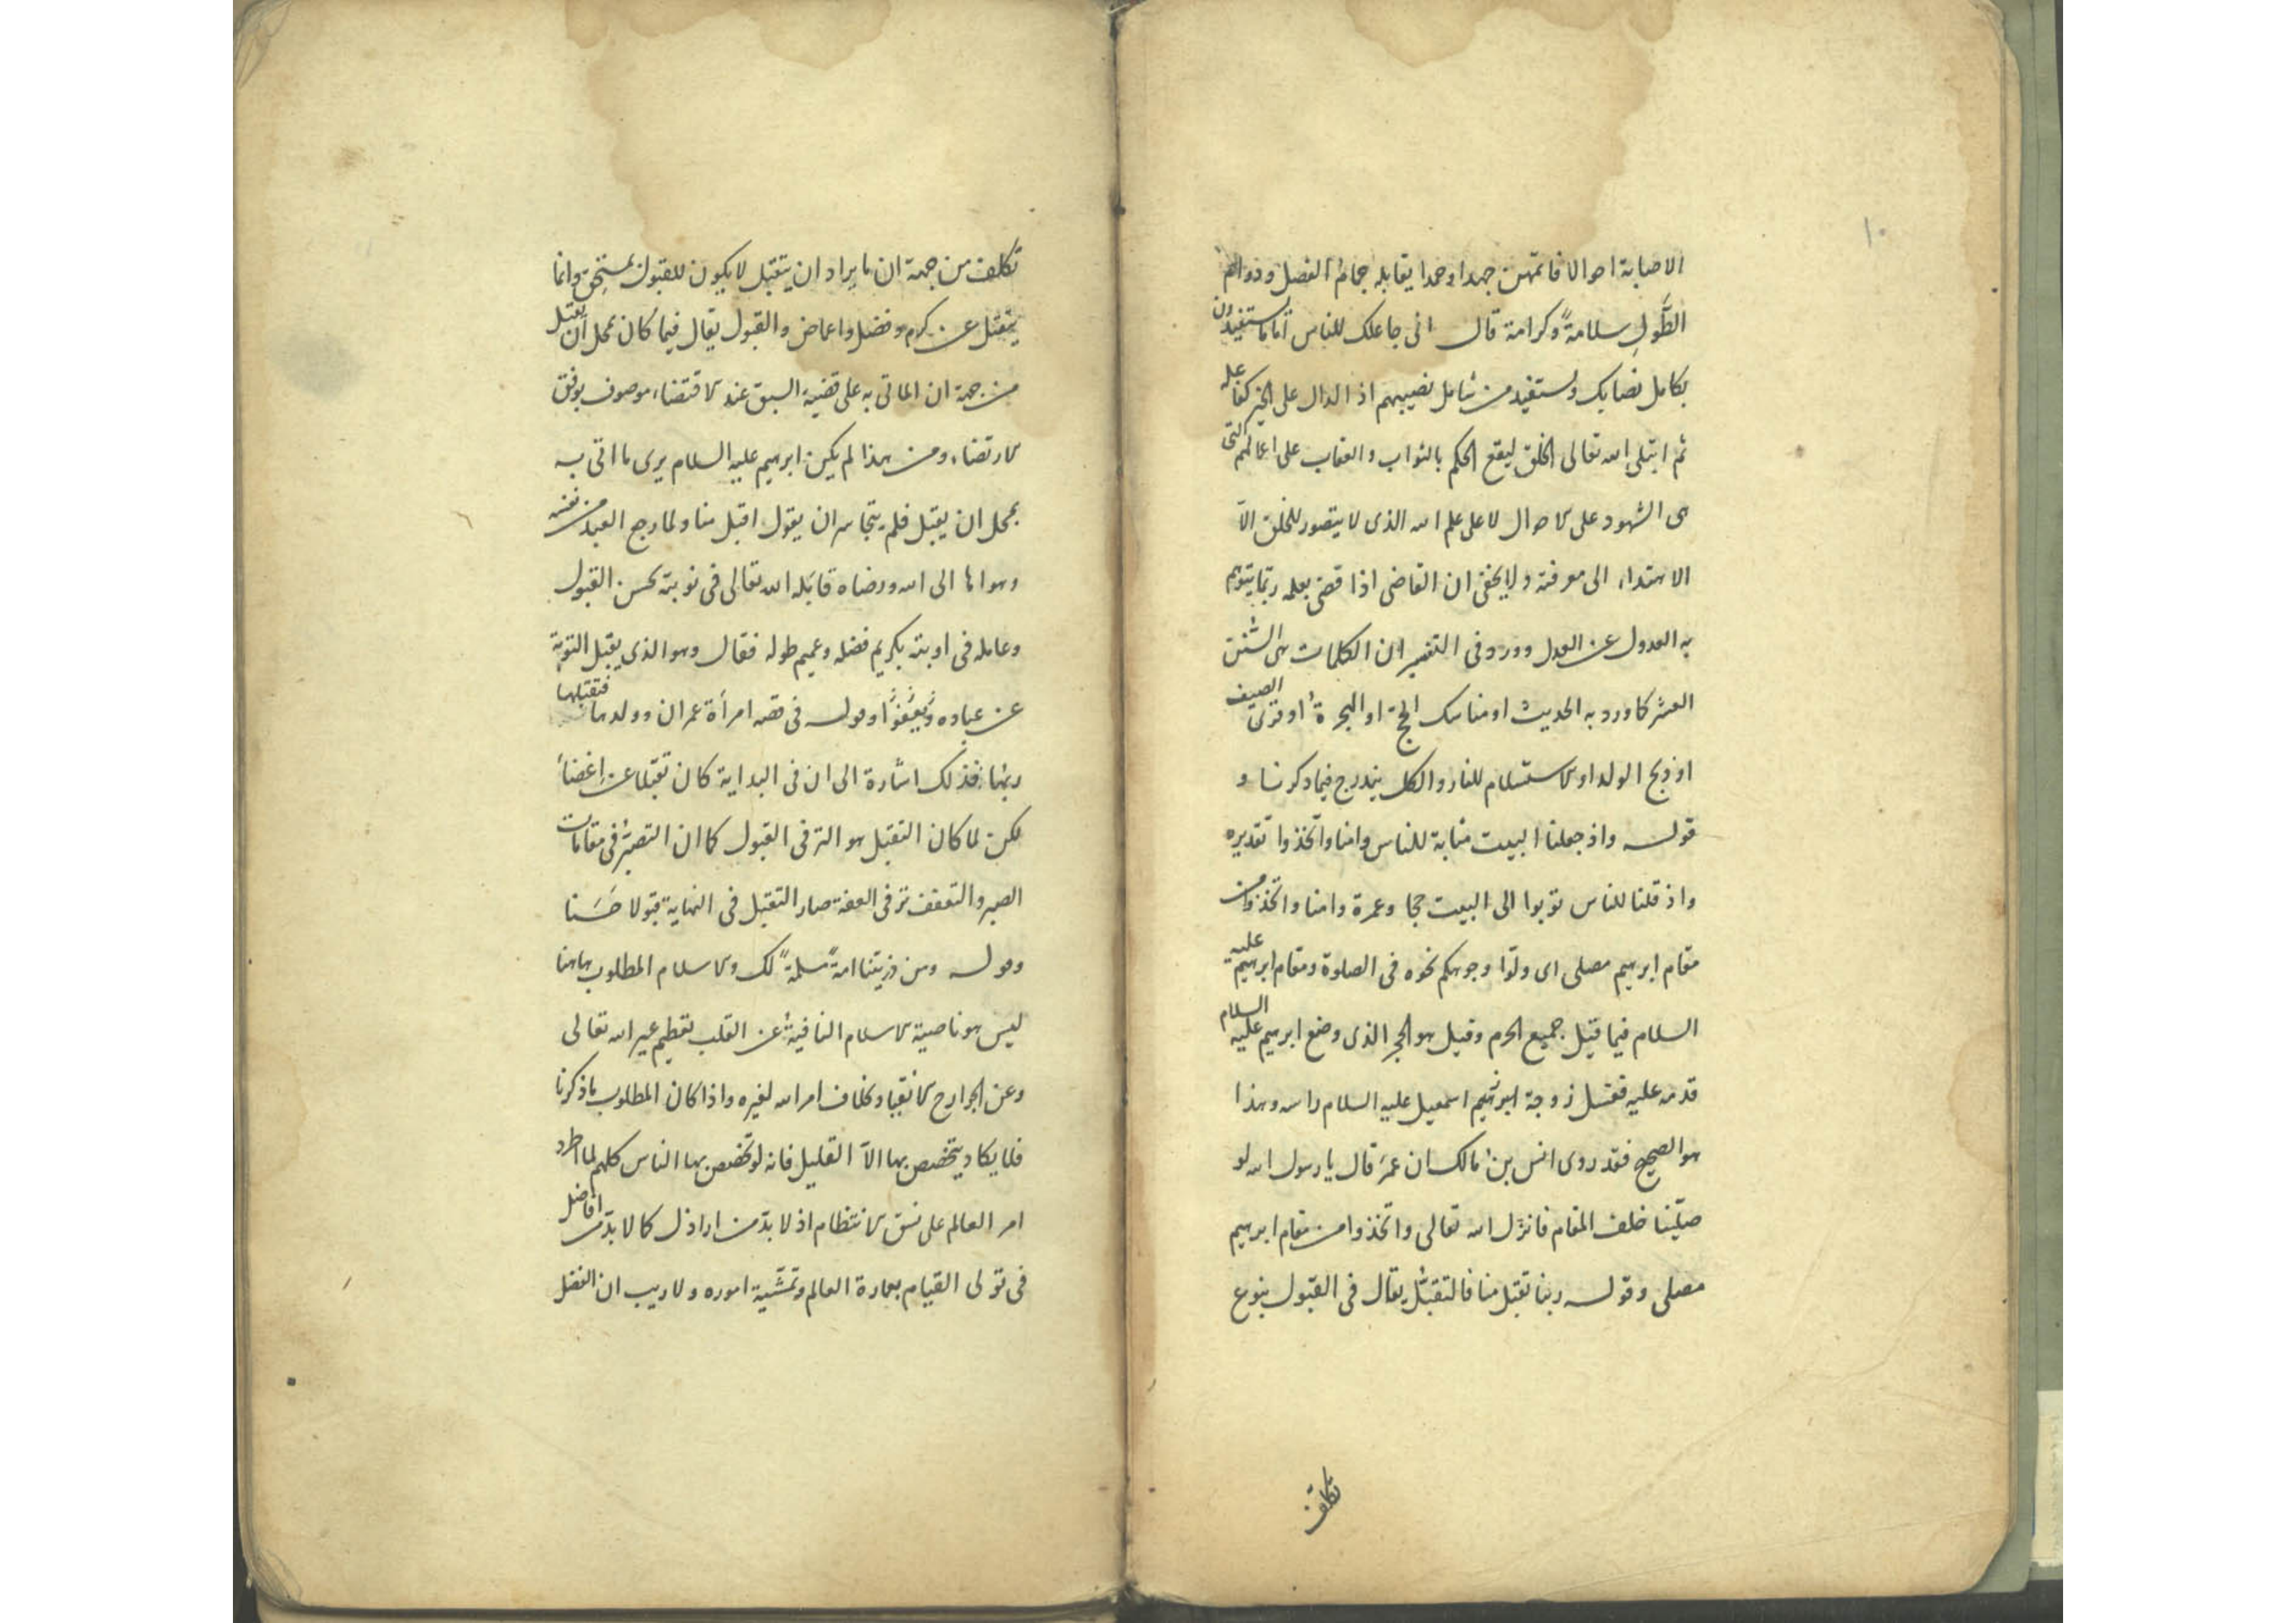 ١٠
الاصابة احوالا فاتمهن جهدا وحمدا يقابله جمام الفضل ودوام
الطَّولِ سلامةً وكرامة قال انى جاعلك للناس اماما مستفيدون
بكامل نصابك وتستفيد من شامل نصيبهم اذ الدال على الخير كفاعله
ثم ابتلى الله تعالى الخلق ليقع الحكم بالثواب والعقاب على اعمالهم التى
هى الشهود على الاحوال لا على علم الله الذى لا يتصور للخلق الّا
الاهتداء الى معرفته ولا يخفى ان القاضى اذا قضى بعلمه ربّما يتوهم
به العدول عن العدل وورد فى التفسير ان الكلمات هى السنن
العشر كما ورد به الحديث او مناسك الحج او الهجرة او قرى الضيف
او ذبح الولد او الاستسلام للنار والكل يندرج فيما ذكرنا و
قوله واذ جعلنا البيت مثابة للناس وامنا واتخذوا تقديره
واذ قلنا للناس توبوا الى البيت حجا وعمرة وامنا واتخذوا من
مقام ابرهيم مصلى اى ولّوا وجوهكم نحوه فى الصلوة ومقام ابرهيم عليه
السلام فيما قيل جميع الحرم وقيل هو الحجر الذى وضع ابرهيم عليه السلام
قدمه عليه فغسل زوجة ابرهيم اسمعيل عليه السلام راسه وهذا
هو الصحيح فقد روى انس بن مالك ان عمر قال يا رسول الله لو
صلّينا خلف المقام فانزل الله تعالى واتخذوا من مقام ابرهيم
مصلى وقوله ربنا تقبل منا فالتقبّل يقال فى القبول بنوع
تكلف
تكلف من جهة ان ما يراد ان يتقبل لا يكون للقبول بمستحِق وانما
يتقبل عن كرم وفضل واغماض والقبول يقال فيما كان بمحل ان يقبل
من جهة ان الماتى به على قضية السبق عند الاقتضاء موصوف بوفق
الارتضاء ومن هذا لم يكن ابرهيم عليه السلام يرى ما اتى به
بمحل ان يقبل فلم يتجاسر ان يقول اقبل منا ولما رجع العبد من نفسه
وهواها الى الله ورضاه قابَله الله تعالى فى توبته بحسن القبول
وعامله فى اوبته بكريم فضله وعميم طوله فقال وهو الذى يقبل التوبة
عن عباده ويعفوا وقوله فى قصه امرأة عمران وولدها فتقبلها
ربها فذلك اشارة الى ان فى البداية كان تقبلا عن اغضاء
لكن لما كان التقبل هو الترقى القبول كما ان التصبّر فى مقامات
الصبر والتعفف ترقى العفة صار التقبل فى النهاية قبولا حَسَنا
وقوله ومن ذريتنا امةً مسلمةً لك والاسلام المطلوب هاهنا
ليس هو ناصية الاسلام النافية عن القلب تعظيم غير الله تعالى
وعن الجوارح الانقياد بخلاف امر الله لغيره واذا كان المطلوب ما ذكرنا
فلا يكاد يتخصص بها الّا القليل فانه لو تخصص بها الناس كلهم لما اطرد
امر العالم على نسق الانتظام اذ لا بدّ من اراذل كما لا بدّ من افاضل
فى تولى القيام بعمارة العالم وتمشّية اموره ولا ريب ان الفضل